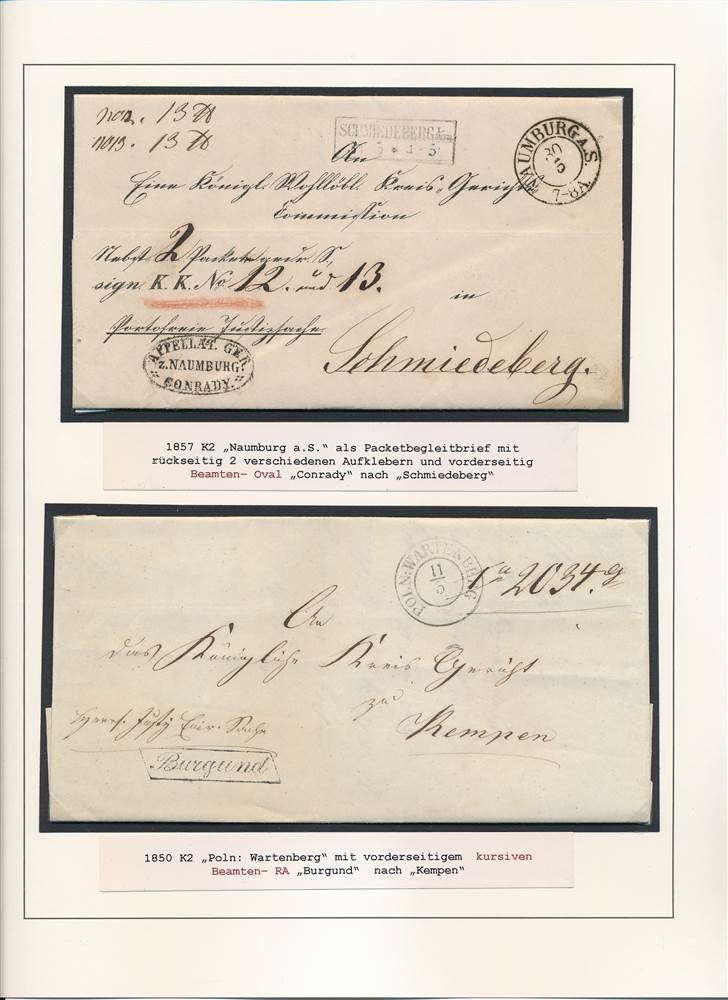 non. 13 ℔
no 13. 13 ℔
SCHMIEDEBERG
5 * 4-5
NAUMBURG A.S.
30
5
7-8A
An
Eine Königl. Wohllöbl. Kreis-Gerichts
Commission
Nebst 2 Packete gedr. S,
sign K. K. No 12. und 13.
in
Portofreie Justizsache
Schmiedeberg.
APPELLAT. GER.
z. NAUMBURG
CONRADY.
1857 K2 „Naumburg a.S.“ als Packetbegleitbrief mit
rückseitig 2 verschiedenen Aufklebern und vorderseitig
Beamten- Oval „Conrady“ nach „Schmiedeberg“
POLN: WARTENBERG
11
5
2034.
An
das Königliche Kreis Gericht
zu
Kempen
Herrs. Justz Sache
Burgund
1850 K2 „Poln: Wartenberg“ mit vorderseitigem kursiven
Beamten- RA „Burgund“ nach „Kempen“